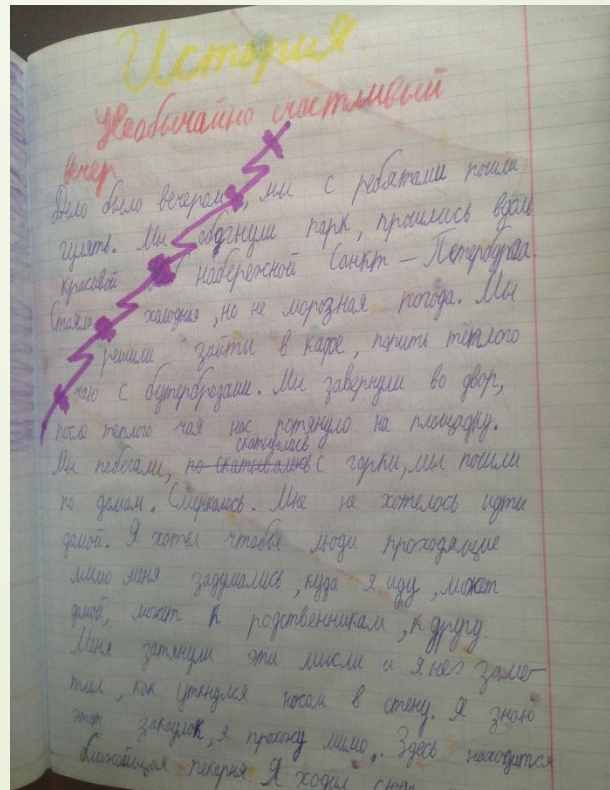 История
Необычайно счастливый
вечер
Дело было вечером, мы с ребятами пошли
гулять. Мы обогнули парк, прошлись вдоль
красивой набережной Санкт – Петербурга.
Стояла холодная, но не морозная погода. Мы
решили зайти в кафе, попить тёплого
чаю с бутербродами. Мы завернули во двор,
после теплого чая нас потянуло на площадку.
скатились
Мы побегали, по скатывались с горки, мы пошли
по домам. Смеркалось. Мне не хотелось идти
домой. Я хотел чтобы люди проходящие
мимо меня задумались, куда я иду, может
домой, может к родственникам, к другу.
Меня затянули эти мысли и я не заме-
тил, как уткнулся носом в стену. Я знаю
этот закоулок, я прохожу мимо. Здесь находится
ближайшая пекерня. Я ходил сюда